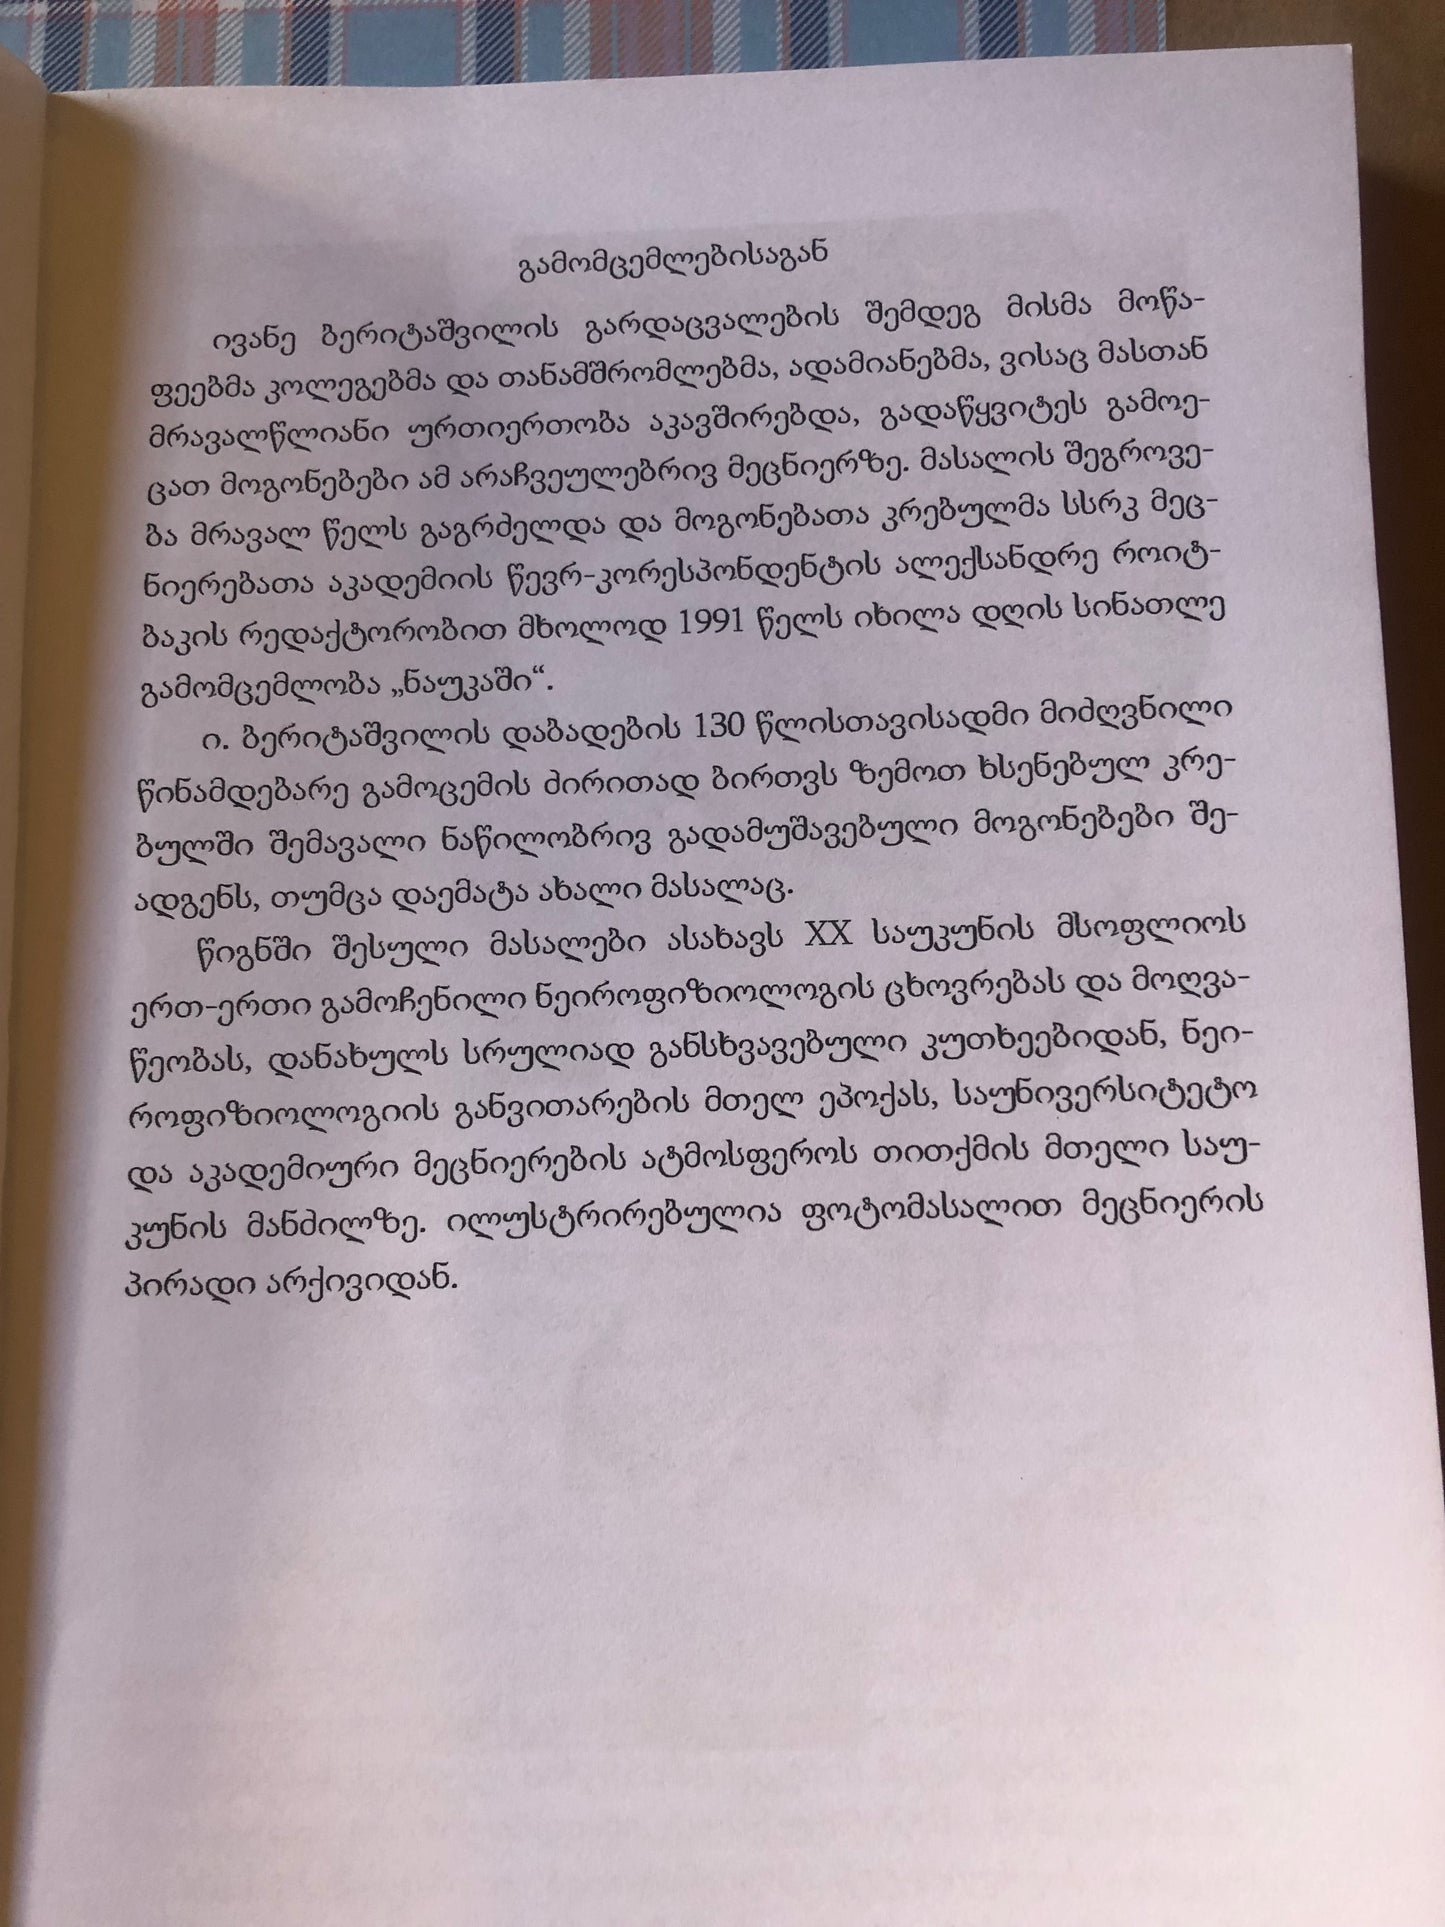 გამომცემლებისაგან
ივანე ბერიტაშვილის გარდაცვალების შემდეგ მისმა მოწა-
ფეებმა კოლეგებმა და თანამშრომლებმა, ადამიანებმა, ვისაც მასთან
მრავალწლიანი ურთიერთობა აკავშირებდა, გადაწყვიტეს გამოე-
ცათ მოგონებები ამ არაჩვეულებრივ მეცნიერზე. მასალის შეგროვე-
ბა მრავალ წელს გაგრძელდა და მოგონებათა კრებულმა სსრკ მეც-
ნიერებათა აკადემიის წევრ-კორესპონდენტის ალექსანდრე როიტ-
ბაკის რედაქტორობით მხოლოდ 1991 წელს იხილა დღის სინათლე
გამომცემლობა „ნაუკაში“.
ი. ბერიტაშვილის დაბადების 130 წლისთავისადმი მიძღვნილი
წინამდებარე გამოცემის ძირითად ბირთვს ზემოთ ხსენებულ კრე-
ბულში შემავალი ნაწილობრივ გადამუშავებული მოგონებები შე-
ადგენს, თუმცა დაემატა ახალი მასალაც.
წიგნში შესული მასალები ასახავს XX საუკუნის მსოფლიოს
ერთ-ერთი გამოჩენილი ნეიროფიზიოლოგის ცხოვრებას და მოღვა-
წეობას, დანახულს სრულიად განსხვავებული კუთხეებიდან, ნეი-
როფიზიოლოგიის განვითარების მთელ ეპოქას, საუნივერსიტეტო
და აკადემიური მეცნიერების ატმოსფეროს თითქმის მთელი საუ-
კუნის მანძილზე. ილუსტრირებულია ფოტომასალით მეცნიერის
პირადი არქივიდან.